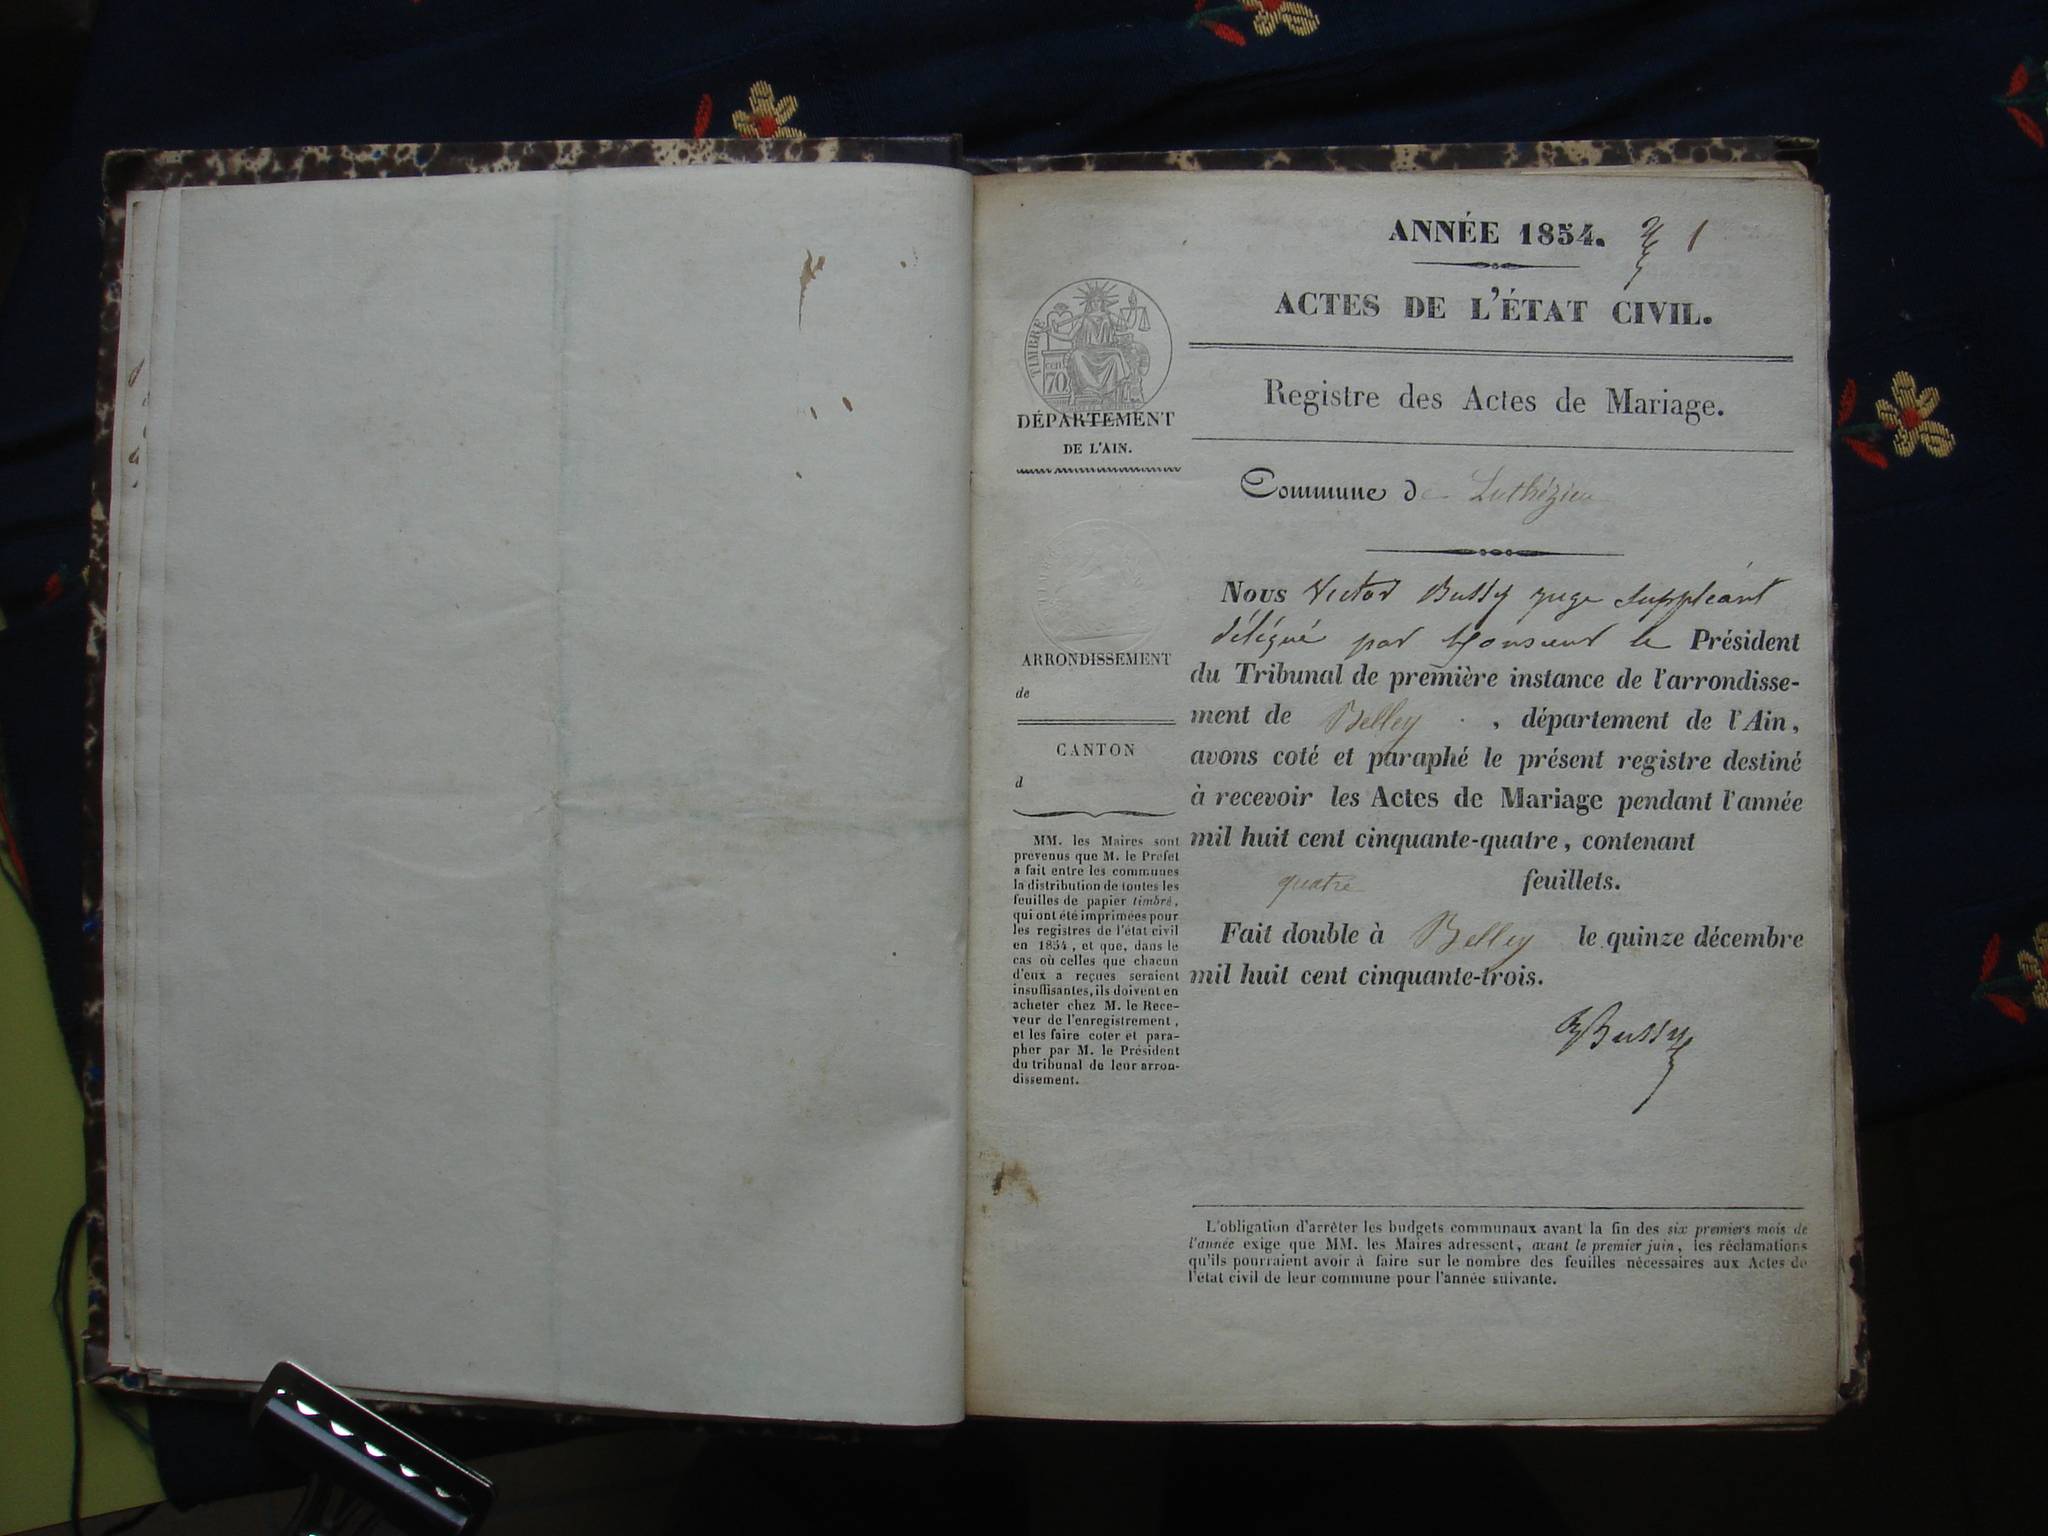 ANNÉE 1854. 1
ACTES DE L'ÉTAT CIVIL.
Registre des Actes de Mariage.
Commune de Luthézieu
Nous Victor Bussy juge suppléant
délégué par Monsieur le Président
du Tribunal de première instance de l'arrondisse-
ment de Belley , département de l'Ain,
avons coté et paraphé le présent registre destiné
à recevoir les Actes de Mariage pendant l'année
mil huit cent cinquante-quatre, contenant
quatre feuillets.
Fait double à Belley le quinze décembre
mil huit cent cinquante-trois.
Bussy
TIMBRE
cen 70
DÉPARTEMENT
DE L'AIN.
ARRONDISSEMENT
de
CANTON
d
MM. les Maires sont
prévenus que M. le Préfet
a fait entre les communes
la distribution de toutes les
feuilles de papier timbré,
qui ont été imprimées pour
les registres de l'état civil
en 1854, et que, dans le
cas où celles que chacun
d'eux a reçues seraient
insuffisantes, ils doivent en
acheter chez M. le Rece-
veur de l'enregistrement,
et les faire coter et para-
pher par M. le Président
du tribunal de leur arron-
dissement.
L'obligation d'arrêter les budgets communaux avant la fin des six premiers mois de
l'année exige que MM. les Maires adressent, avant le premier juin, les réclamations
qu'ils pourraient avoir à faire sur le nombre des feuilles nécessaires aux Actes de
l'état civil de leur commune pour l'année suivante.